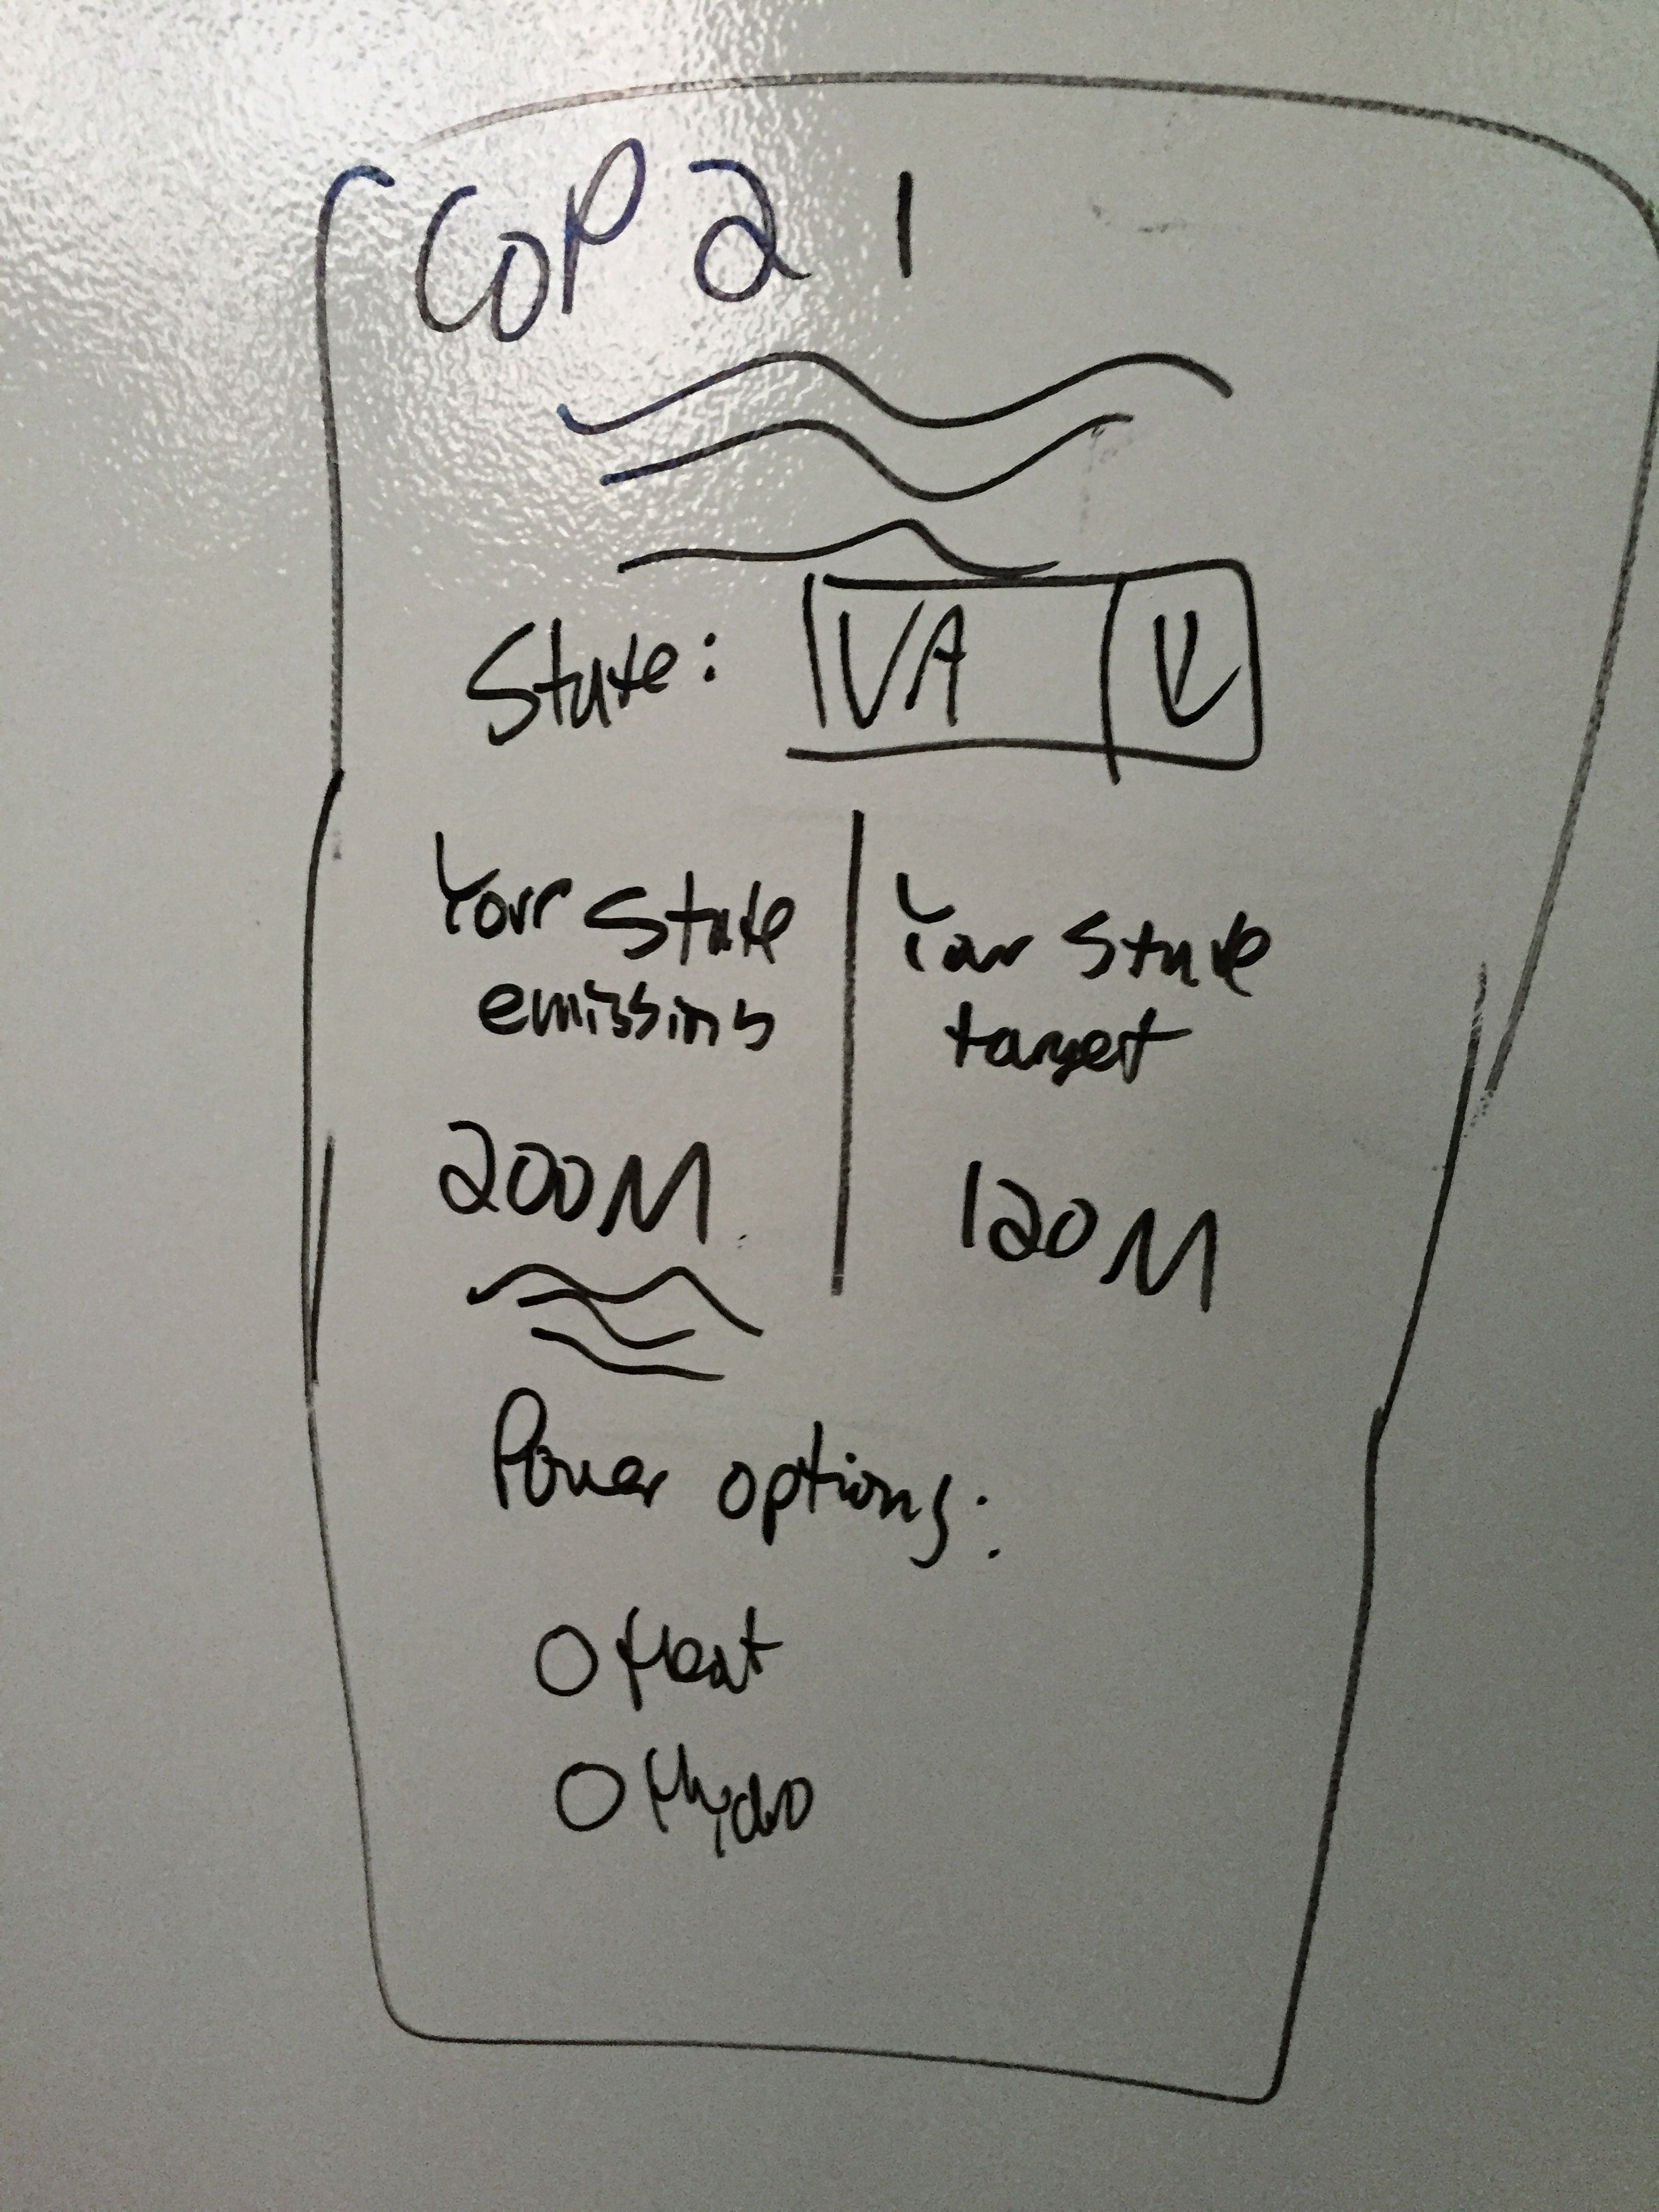 COP 21
State: VA
Your State
emissions
200M
Your State
target
120M
Power options:
Heat
Hydro